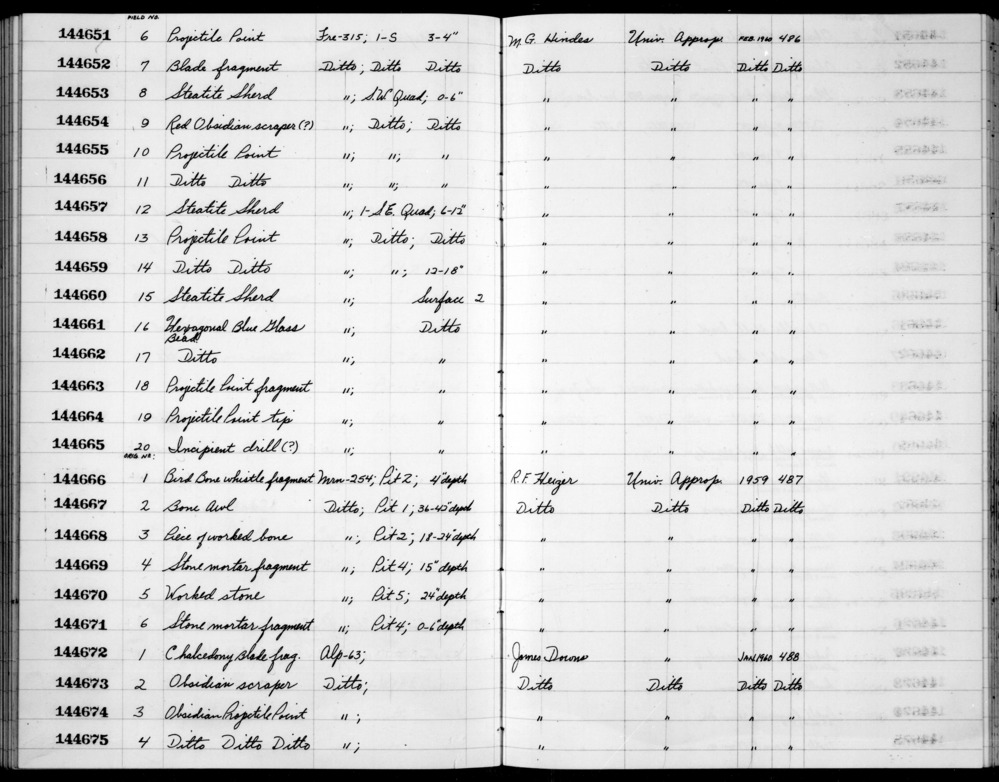 FIELD NO.
144651 6 Projectile Point Fre-315; 1-S 3-4" M.G. Hindes Univ. Approp. FEB. 1960 486
144652 7 Blade fragment Ditto; Ditto Ditto Ditto Ditto Ditto Ditto
144653 8 Steatite Sherd "; S.W. Quad; 0-6" " " " "
144654 9 Red Obsidian scraper(?) "; Ditto; Ditto " " " "
144655 10 Projectile Point "; "; " " " " "
144656 11 Ditto Ditto "; "; " " " " "
144657 12 Steatite Sherd "; 1-S.E. Quad; 6-12" " " " "
144658 13 Projectile Point "; Ditto; Ditto " " " "
144659 14 Ditto Ditto "; "; 12-18" " " " "
144660 15 Steatite Sherd "; Surface 2 " " " "
144661 16 Hexagonal Blue Glass "; Ditto " " " "
Bead
144662 17 Ditto "; " " " " "
144663 18 Projectile Point fragment "; " " " " "
144664 19 Projectile Point tip "; " " " " "
144665 20 Incipient drill(?) "; " " " "
ORIG. NO:
144666 1 Bird Bone whistle fragment Mrn-254; Pit 2; 4" depth R.F. Heizer Univ. Approp. 1959 487
144667 2 Bone Awl Ditto; Pit 1; 36-42" depth Ditto Ditto Ditto Ditto
144668 3 Piece of worked bone "; Pit 2; 18-24" depth " " " "
144669 4 Stone mortar fragment "; Pit 4; 15" depth " " " "
144670 5 Worked stone "; Pit 5; 24" depth " " " "
144671 6 Stone mortar fragment "; Pit 4; 0-6" depth " " " "
144672 1 Chalcedony Blade frag. Alp-63; James Downs " JAN. 1960 488
144673 2 Obsidian scraper Ditto; Ditto Ditto Ditto Ditto
144674 3 Obsidian Projectile Point "; " " " "
144675 4 Ditto Ditto Ditto "; " " " "